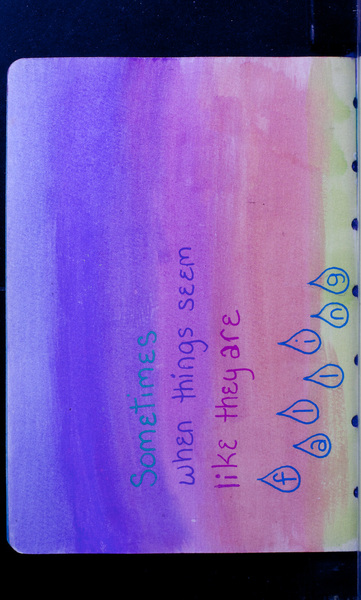 Sometimes
when things seem
like they are
falling